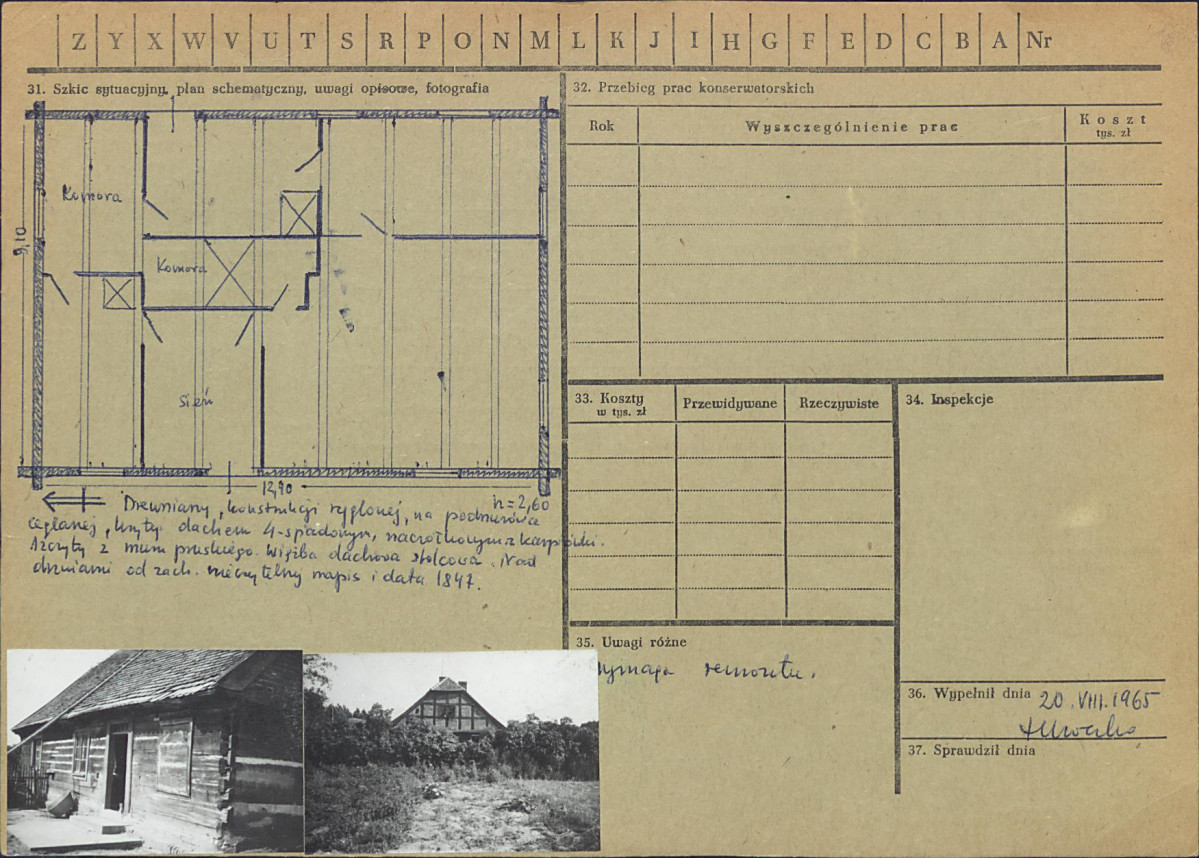 Z Y X W V U T S R P O N M L K J I H G F E D C B A Nr
31. Szkic sytuacyjny, plan schematyczny, uwagi opisowe, fotografia
Komora
9,10
Komora
Sień
12,90
h=2,60
Drewniany, konstrukcji ryglowej, na podmurówce
ceglanej, kryty dachem 4-spadowym, naczółkowym z karpiówki.
Szczyty z muru pruskiego. Więźba dachowa stolcowa. Nad
drzwiami od zach. nieczytelny napis i data 1847.
32. Przebieg prac konserwatorskich
Rok
Wyszczególnienie prac
Koszt
tys. zł
33. Koszty
w tys. zł
Przewidywane
Rzeczywiste
34. Inspekcje
35. Uwagi różne
wymaga remontu.
36. Wypełnił dnia 20.VIII.1965
37. Sprawdził dnia